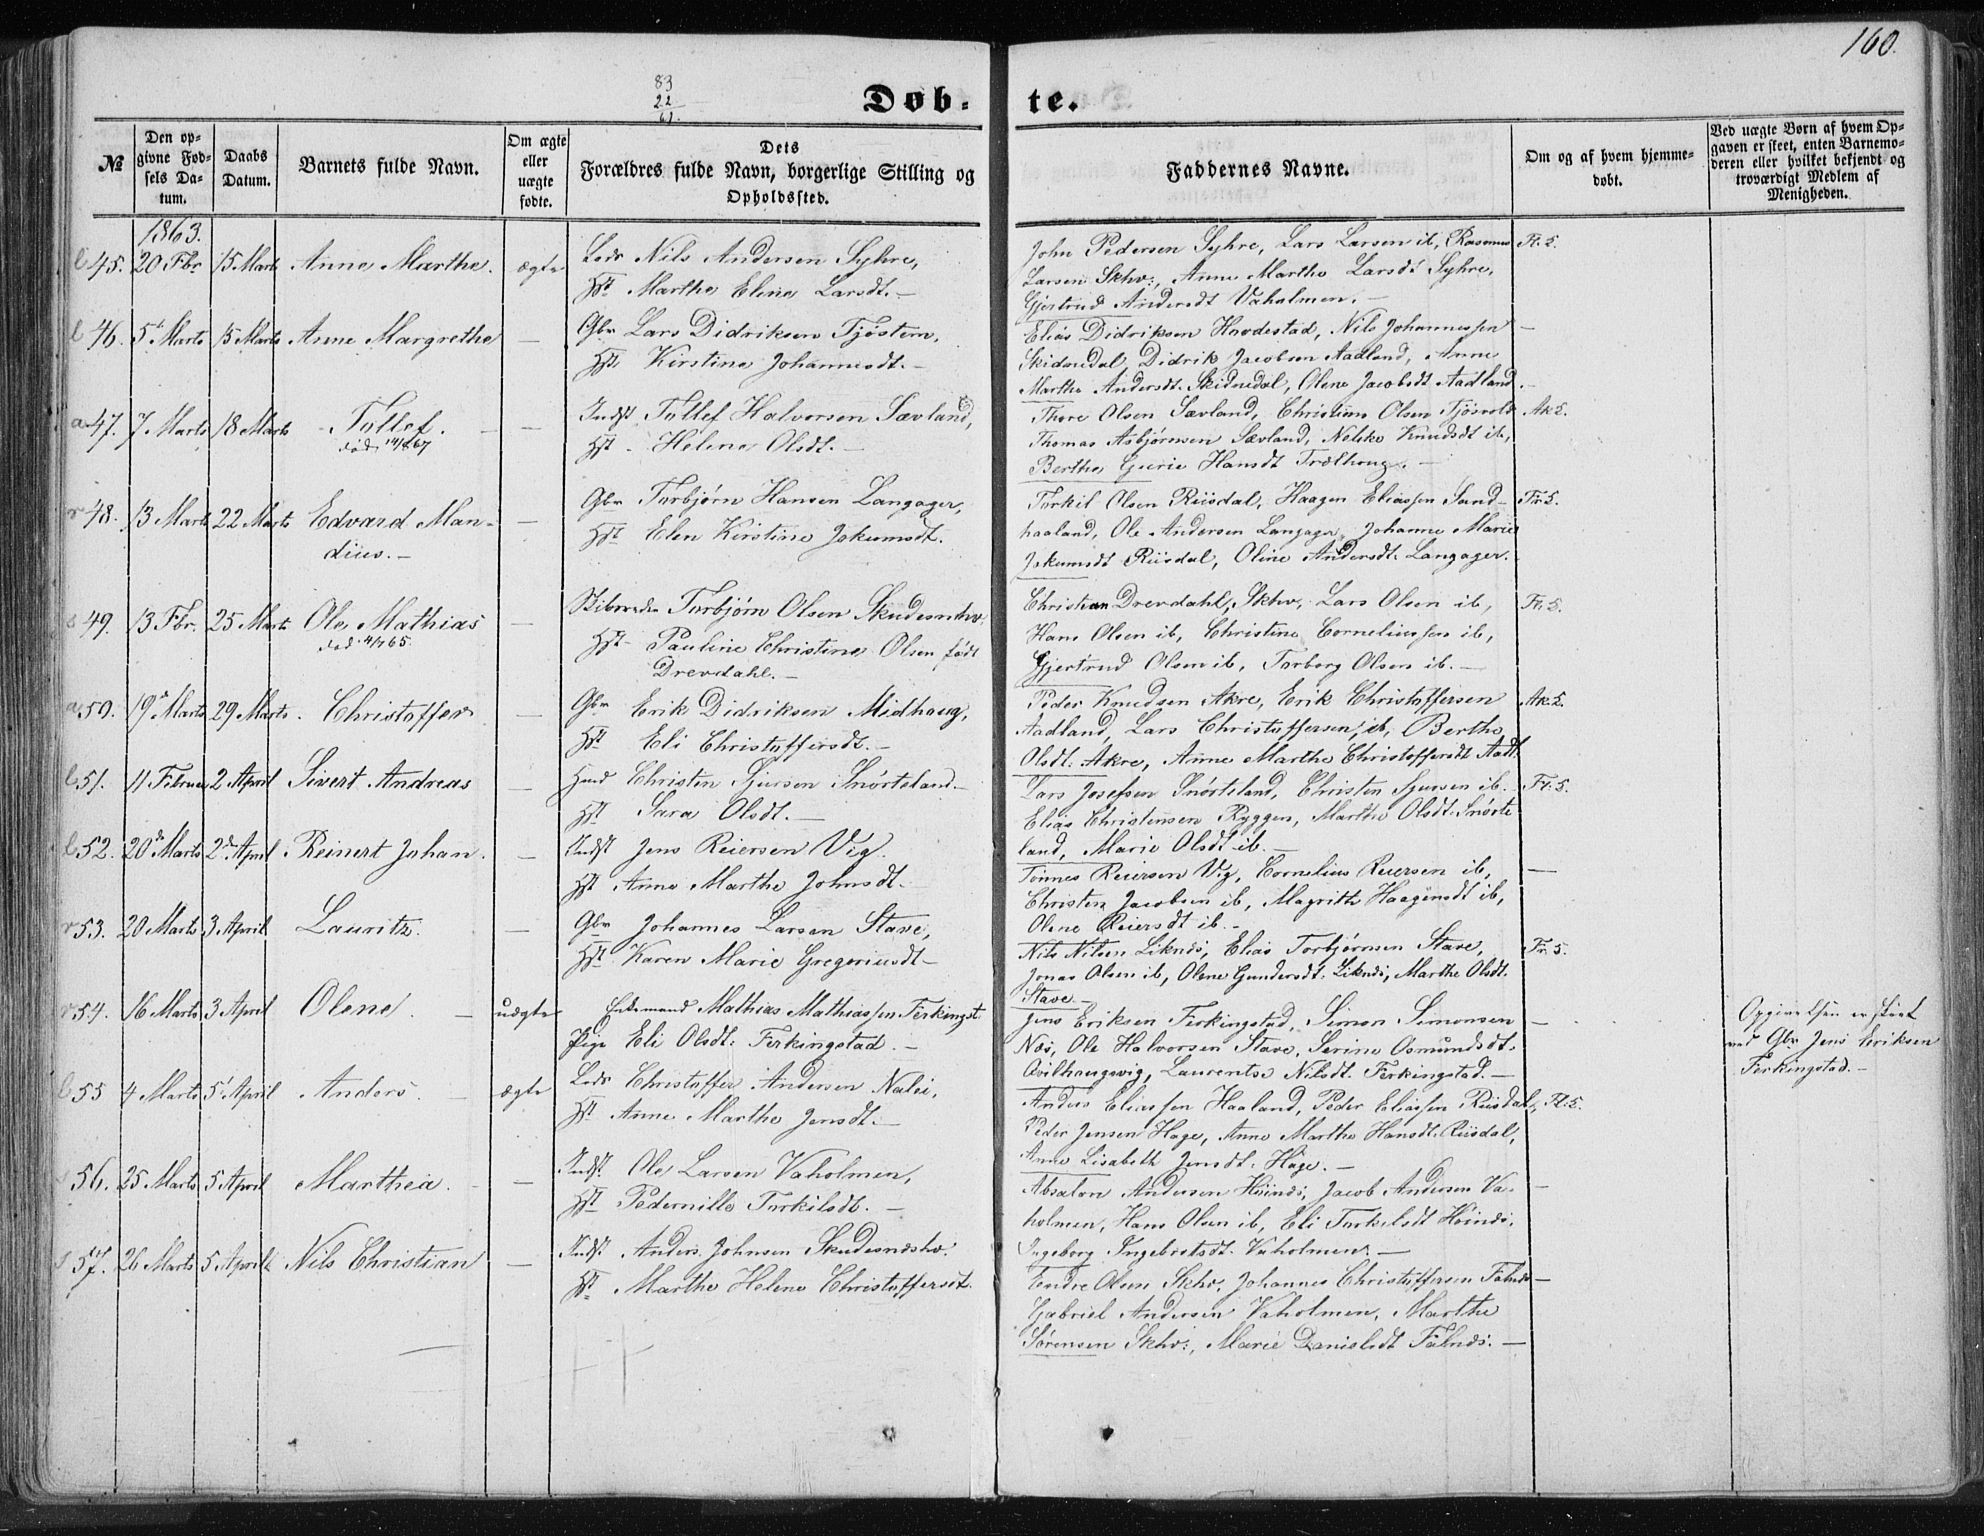 160.
83
22
61.
Døb-te.
№
Den opgivne Fødsels Datum.
Daabs Datum.
Barnets fulde Navn.
Om ægte eller uægte fødte.
Dets Forældres fulde Navn, borgerlige Stilling og Opholdssted.
Faddernes Navne.
Om og af hvem hjemmedøbt.
Ved uægte Børn af hvem Opgaven er skeet, enten Barnemoderen eller hvilket bekjendt og troværdigt Medlem af Menigheden.
1863.
b 45. 20 Fbr 15 Marts Anne Marthe. ægte
Nils Andersen Syhre,
Hst Marthe Eline Larsdt. —
John Pedersen Syhre, Lars Larsen ib, Rasmus
Larsen Skhv:, Anne Marthe Larsdt Syhre,
Gjertrud Andersdt Vaholmen. —
Fl. 5.
b 46. 5t Marts 15 Marts Anne Margrethe —
Gbr Lars Didriksen Tjøstem,
Hst Kirstine Johannesdt. —
Elias Didriksen Havdestad, Nils Johannessen
Skidnedal Didrik Jacobsen Aadland, Anne
Marthe Andersdt. Skidnedal, Olene Jacobsdt Aadland. —
—
a 47. 7 Marts 18 Marts Tollef. —
død 14/8 67
Indst Tollef Halvorsen Sævland,
Hst. Helene Olsdt. —
Thore Olsen Sævland, Christian Olsen Tjøsvold
Thomas Asbjørnsen Sævland, Nelske Knudsdt ib,
Berthe Gurie Hansdt Trælhoug. —
Ak 5.
r 48. 13 Marts 22 Marts Edvard Man-
dius. —
Gbr Torbjørn Hansen Langager,
Hst Elen Kirstine Jokumsdt.
Torkil Olsen Riisdal, Haagen Eliassen Sand-
haaland, Ole Andersen Langager, Johanne Marie
Jokumsdt Riisdal, Oline Andersdt. Langager.
Fr. 5.
s 49. 13 Fbr. 25 Marts Ole Mathias —
død 4/7 65.
Torbjørn Olsen Skudesnhv.
Hst Pauline Christine Olsen født
Drevdahl. —
Christian Drevdahl, Skhv, Lars Olsen ib,
Hans Olsen ib, Christine Corneliussen ib,
Gjertrud Olsen ib, Torborg Olsen ib. —
Fl. 5.
a 50. 19de Marts 29 Marts. Christoffer —
Gbr Erik Didriksen Midhaug,
Hst Eli Christoffersdt. —
Peder Knudsen Akre, Erik Christoffersen
Aadland, Lars Christoffersen, ib, Berthe
Olsdt. Akre, Anne Marthe Christoffersdt Aadl.
Ak. 5.
b 51. 11 Februar 2 April Sivert Andreas —
Husd Christen Sjursen Snørteland. —
Hst Sara Olsdt. —
Lars Josefsen Snørteland, Christen Sjursen ib.
Elias Christensen Ryggen, Marthe Olsdt. Snørte
land, Marie Olsdt ib. —
Fl. 5.
b 52. 20de Marts 2den April Reinert Johan. —
Indst Jens Reiersen Vig.
Hst Anne Marthe Johnsdt.
Tønnes Reiersen Vig, Cornelius Reiersen ib,
Christen Jacobsen ib, Magrithe Haagensdt ib,
Olene Reiersdt ib. —
—
r 53. 20 Marts 3 April Lauritz. —
Gbr Johannes Larsen Stave,
Hst Karen Marie Gregoriusdt —
Nils Nilsen Liknæs, Elias Torbjørnsen Stave,
Jonas Olsen ib, Olene Gundersdt. Liknæs, Marthe Olsdt.
Stave —
Fr. 5.
r 54. 16 Marts 3 April Olene. — uægte
Enkemand Mathias Mathiassen Ferkingst
Pige Eli Olsdt: Ferkingstad. —
Jens Eriksen Ferkingstad, Simon Simonsen
Næs, Ole Halvorsen Stave, Serine Osmundsdt.
Qvilhaugsvig, Laurentse Nilsdt. Ferkingstad. —
—
Opgivelsen er skeet
ved Gbr Jens Eriksen
Ferkingstad. —
b 55 4 Marts 5t April Anders. — ægte
Christoffer Andersen Nalei,
Hst Anne Marthe Jensdt. —
Anders Eliassen Haaland, Peder Eliassen Riisdal,
Peder Jensen Hage, Anne Marthe Hansdt. Riisdal,
Anne Lisabeth Jensdt. Hage. —
Fl. 5.
56. 25 Marts 5 April Marthea. —
Indst. Ole Larsen Vaholmen,
Hst Pedernille Torkilsdt. —
Absalon Andersen Høinæs, Jacob Andersen Va-
holmen, Hans Olsen ib, Eli Torkilsdt Høinæs.
Ingeborg Ingebretsdt. Vaholmen. —
—
s 57. 26 Marts 5 April Nils Christian —
Indst Anders Johnsen Skudesnæshv.
Hst Marthe Helene Christoffersdt.
Endre Olsen Skhv, Johannes Christoffersen Falnæs —
Gabriel Andersen Vaholmen, Marthe
Sørensen Skhv:, Marie Danielsdt Falnæs. —